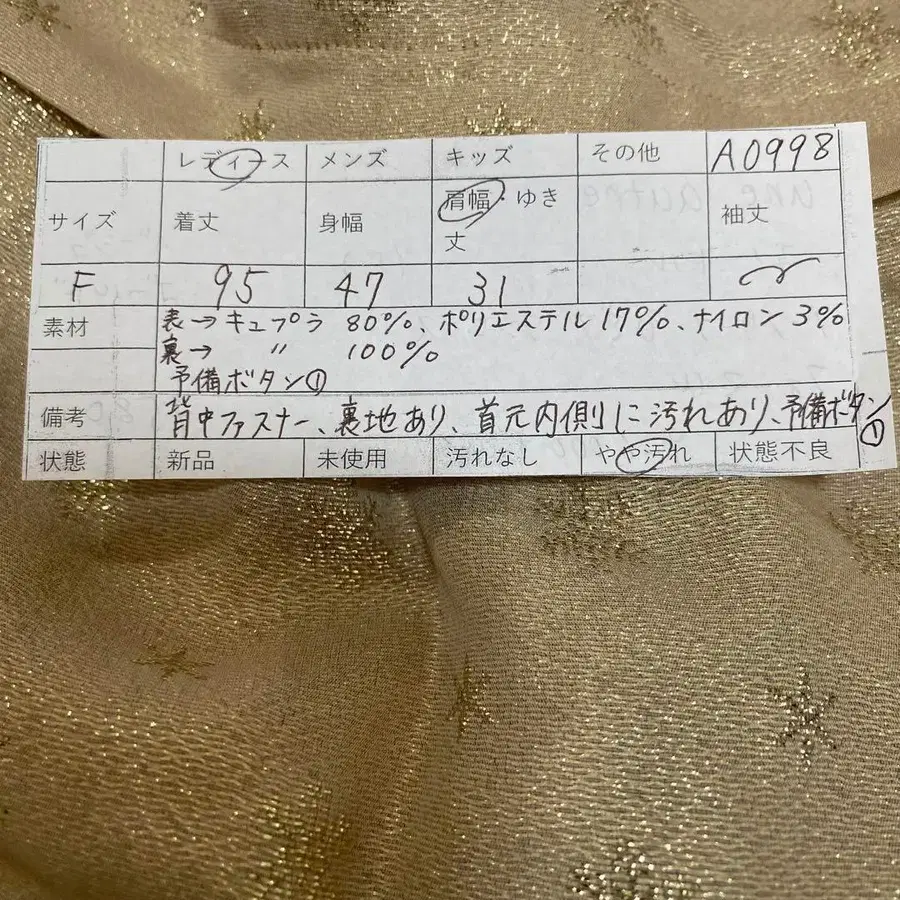 レディース メンズ キッズ その他 A0998
サイズ 着丈 身幅 肩幅・ゆき丈 袖丈
F 95 47 31
素材 表→キュプラ 80%、ポリエステル17%、ナイロン3%
裏→ 〃 100%
予備ボタン①
備考 背中ファスナー、裏地あり、首元内側に汚れあり、予備ボタン①
状態 新品 未使用 汚れなし やや汚れ 状態不良